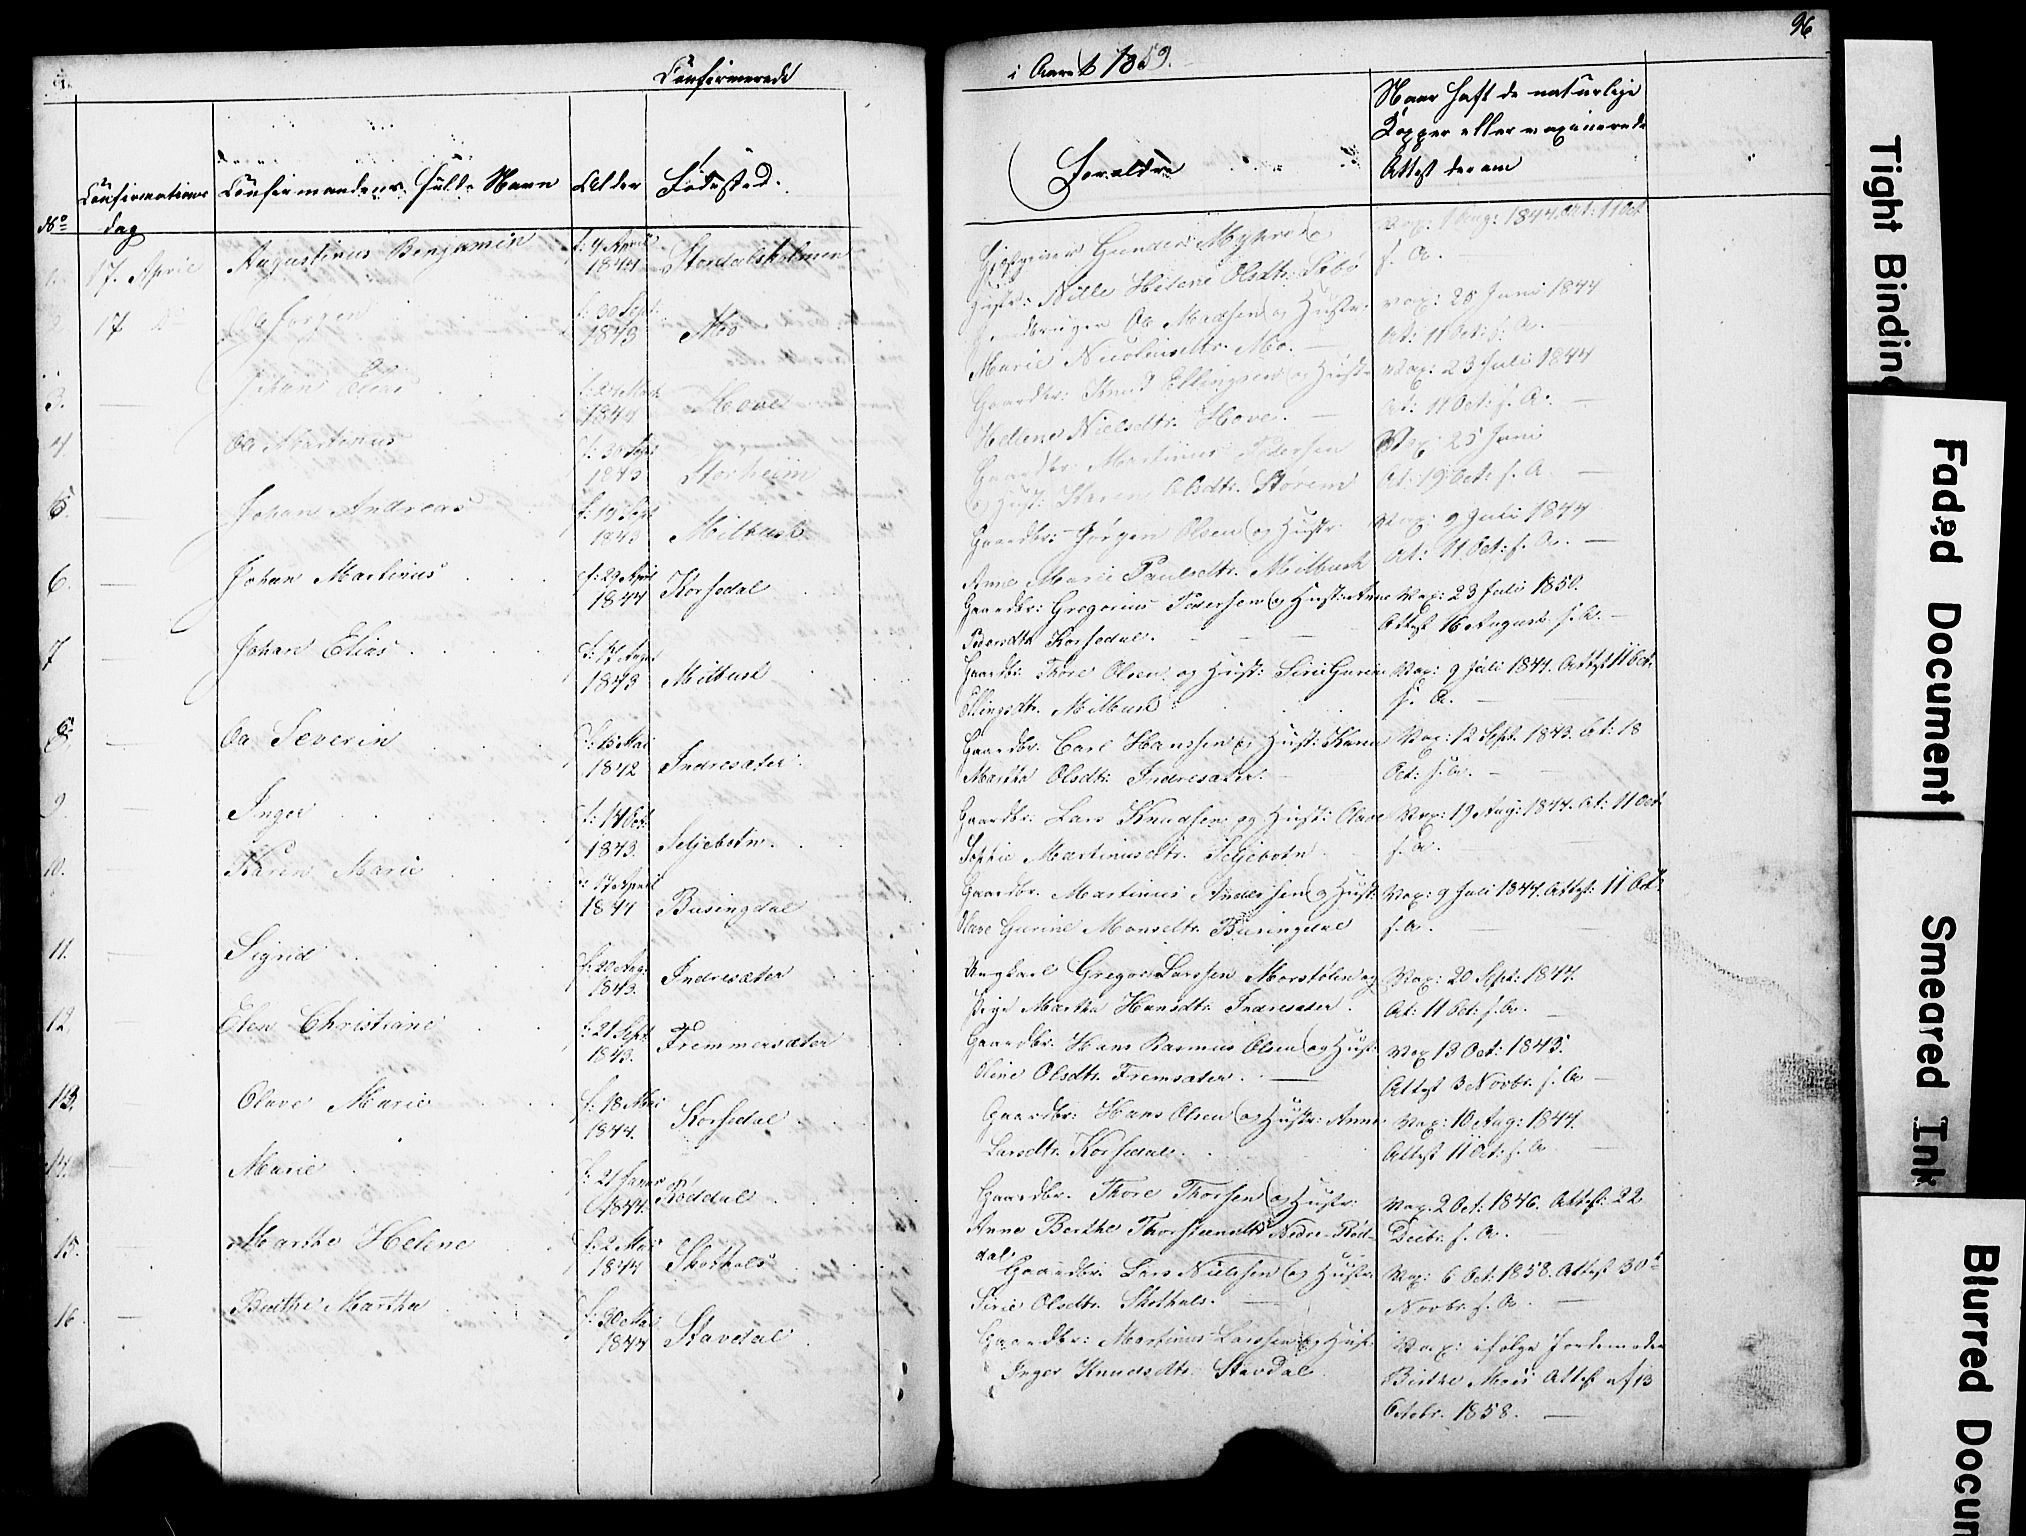 Confirmerede
i Aaret 1859.
96
No
Confirmations
dag
Confirmandens fulde Navn
Alder
Fødested.
Forældre
Naar haft de naturlige
Kopper eller vaxinerede
Attest derom
17. April
Augustinus Benjamin
f: 4 April
1844
Stordalsholmen
Gunder Myhre og
Hustr: Nille Helene Olsdtr:
Vax: 1 Aug: 1844. Att: 11 Oct
f. A.
17 Do
Jørgen
f: 30 Sept
1843
Mo
Ole Madsen og Hustr:
Marie Nicolaisdtr. Mo.
Vax: 25 Juni 1844
Att: 11 Oct: f. A.
3.
Johan Elias
1844
Hove
Gaardbr: Knud Ellingsen og Hustr
Hellene Nielsdtr. Hove.
Vax: 23 Juli 1844
Att: 11 Oct: f. A.
4
Ole Martinus
f: 30 Sept
1843
Storheim
Gaardbr. Martinus Pedersen
og Hust: Karen Olsdtr. Størem
Vax: 25 Juni
At: 19 Oct: f. A.
5.
Johan Andreas
f: 19 Sept
1843
Melbust
Gaardbr: Jørgen Olsen og Hustr
Anne Marie Paulsdtr. Melbust
Vax: 9 Juli 1844
At: 11 Oct: f. A.
6.
Johan Martinus
f: 29 April
1844
Korsedal
Gaardbr: Gregorius Pedersen og Hust: Anne
Pedersdtr Korsedal.
Vax: 23 Juli 1850.
Attest 16 August f. A.
7
Johan Elias
f: 17 Augst
1843
Melbust
Gaardbr: Thore Olsen og Hust: Siri Gurine
Ellingsdtr. Melbust
Vax: 9 Juli 1844. Attest 11 Oct.
f. A.
8
Ole Severin
f: 15 Mai
1842
Indresæter
Gaardbr. Carl Hanssen og Hust: Karen
Martha Olsdtr: Indresæter.
Vax: 12 Sept. 1843. At: 18
Oct: f. A.
9
Inger
f: 14 Oct:
1843.
Seljebotn.
Gaardbr. Lars Knudsen og Hust: Olave
Sophie Martinusdtr. Seljebotn
Vax: 19 Aug: 1844. At: 11 Oct
f. A.
10.
Karen Marie
f: 17 April
1844
Busingdal
Gaardbr. Martinus Anderssen og Hust:
Olave Gurine Monsdtr. Busingdal
Vax: 9 Juli 1844. Attest: 11 Oct:
f. A.
11.
Sigrid
f: 20 Aug:
1843.
Indresæter
Ungkarl Gregorius Larssen Morstølen og
Pige Martha Hansdtr: Indresæter.
Vax: 20 Sept: 1844.
At: 11 Oct: f. A.
12.
Elen Christiane
f: 21 Sept
1843.
Fremmersæter
Gaardbr. Hans Rasmus Olsen og Hust:
Oline Olsdtr. Fremsæter.
Vax 13 Oct: 1843.
Attest 3 Novbr. f. A
13.
Olave Marie
f: 18 Mai
1844.
Korsedal
Gaardbr: Hans Olsen og Hustr: Anne
Larsdtr: Korsedal.
Vax: 10 Aug: 1844.
Attest 11 Oct: f. A
14.
Marie
f: 21 Januar
1844.
Röddal
Gaardbr. Thore Thorsen og Hustr:
Anne Berthe Thorsteensdtr Nedre-Röd-
dal
Vax. 2 Oct: 1846. Attest: 22
Decbr. f. A.
15.
Marthe Helene
f: 2 Mai
1844
Skothals
Gaardbr. Lars Nielssen og Hustr:
Sirie Olsdtr. Skothals.
Vax: 6 Oct: 1858. Attest 30te
Novbr. f. A.
16
Berthe Martha
f: 30 Mai
1844
Stavdal
Gaardbr: Martinus Larssen og Hust:
Inger Knudsdtr. Stavdal
Vax: ifølge Jordemoder
Birthe Moes Attest af 13
Octobr. 1858.
Tight Binding
Faded Document
Smeared Ink
Blurred Docum